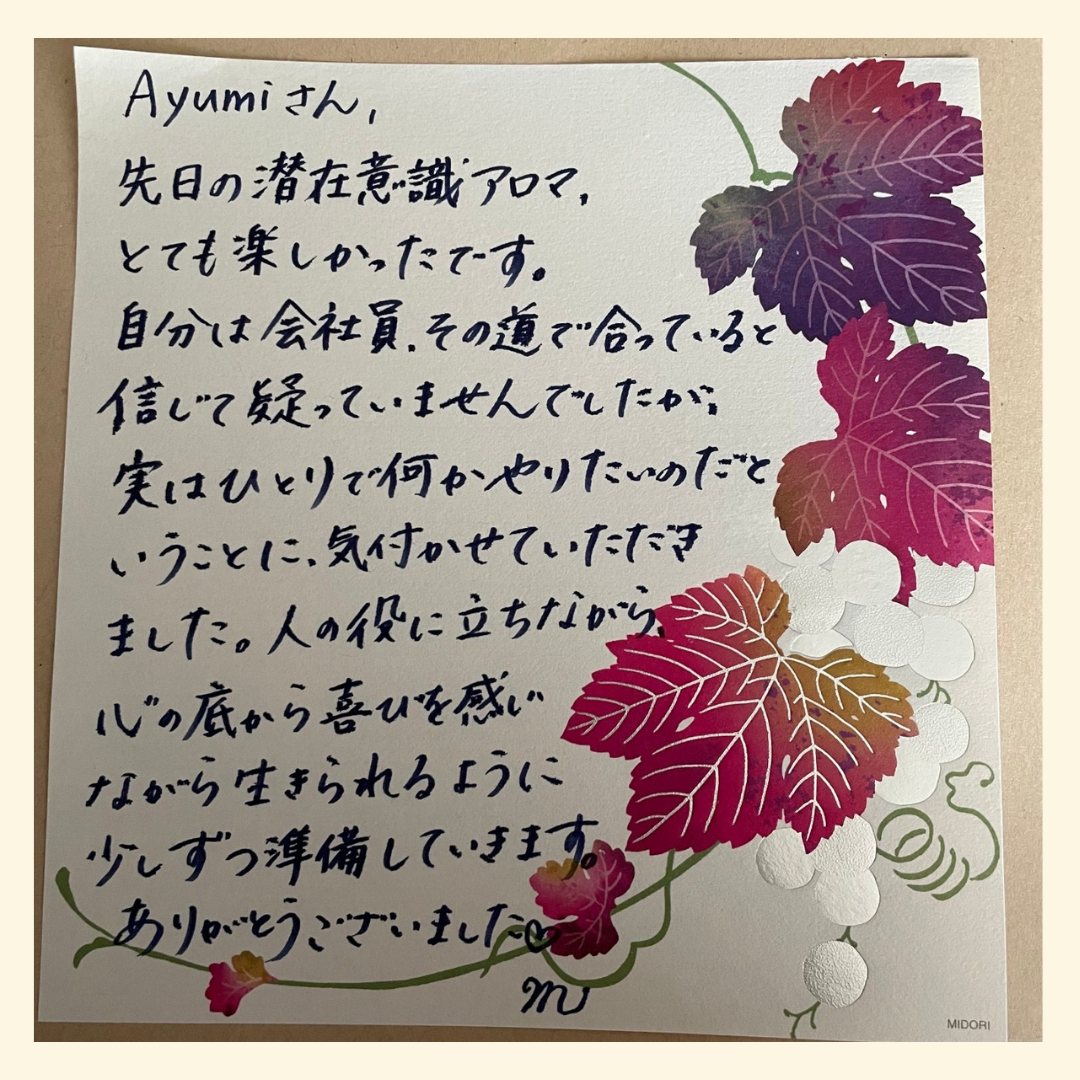 Ayumiさん,
先日の潜在意識アロマ,
とても楽しかったです。
自分は会社員,その道で合っていると
信じて疑っていませんでしたが,
実はひとりで何かやりたいのだと
いうことに、気付かせていただき
ました。人の役に立ちながら,
心の底から喜びを感じ
ながら生きられるように
少しずつ準備していきます。
ありがとうございました♡
m
MIDORI